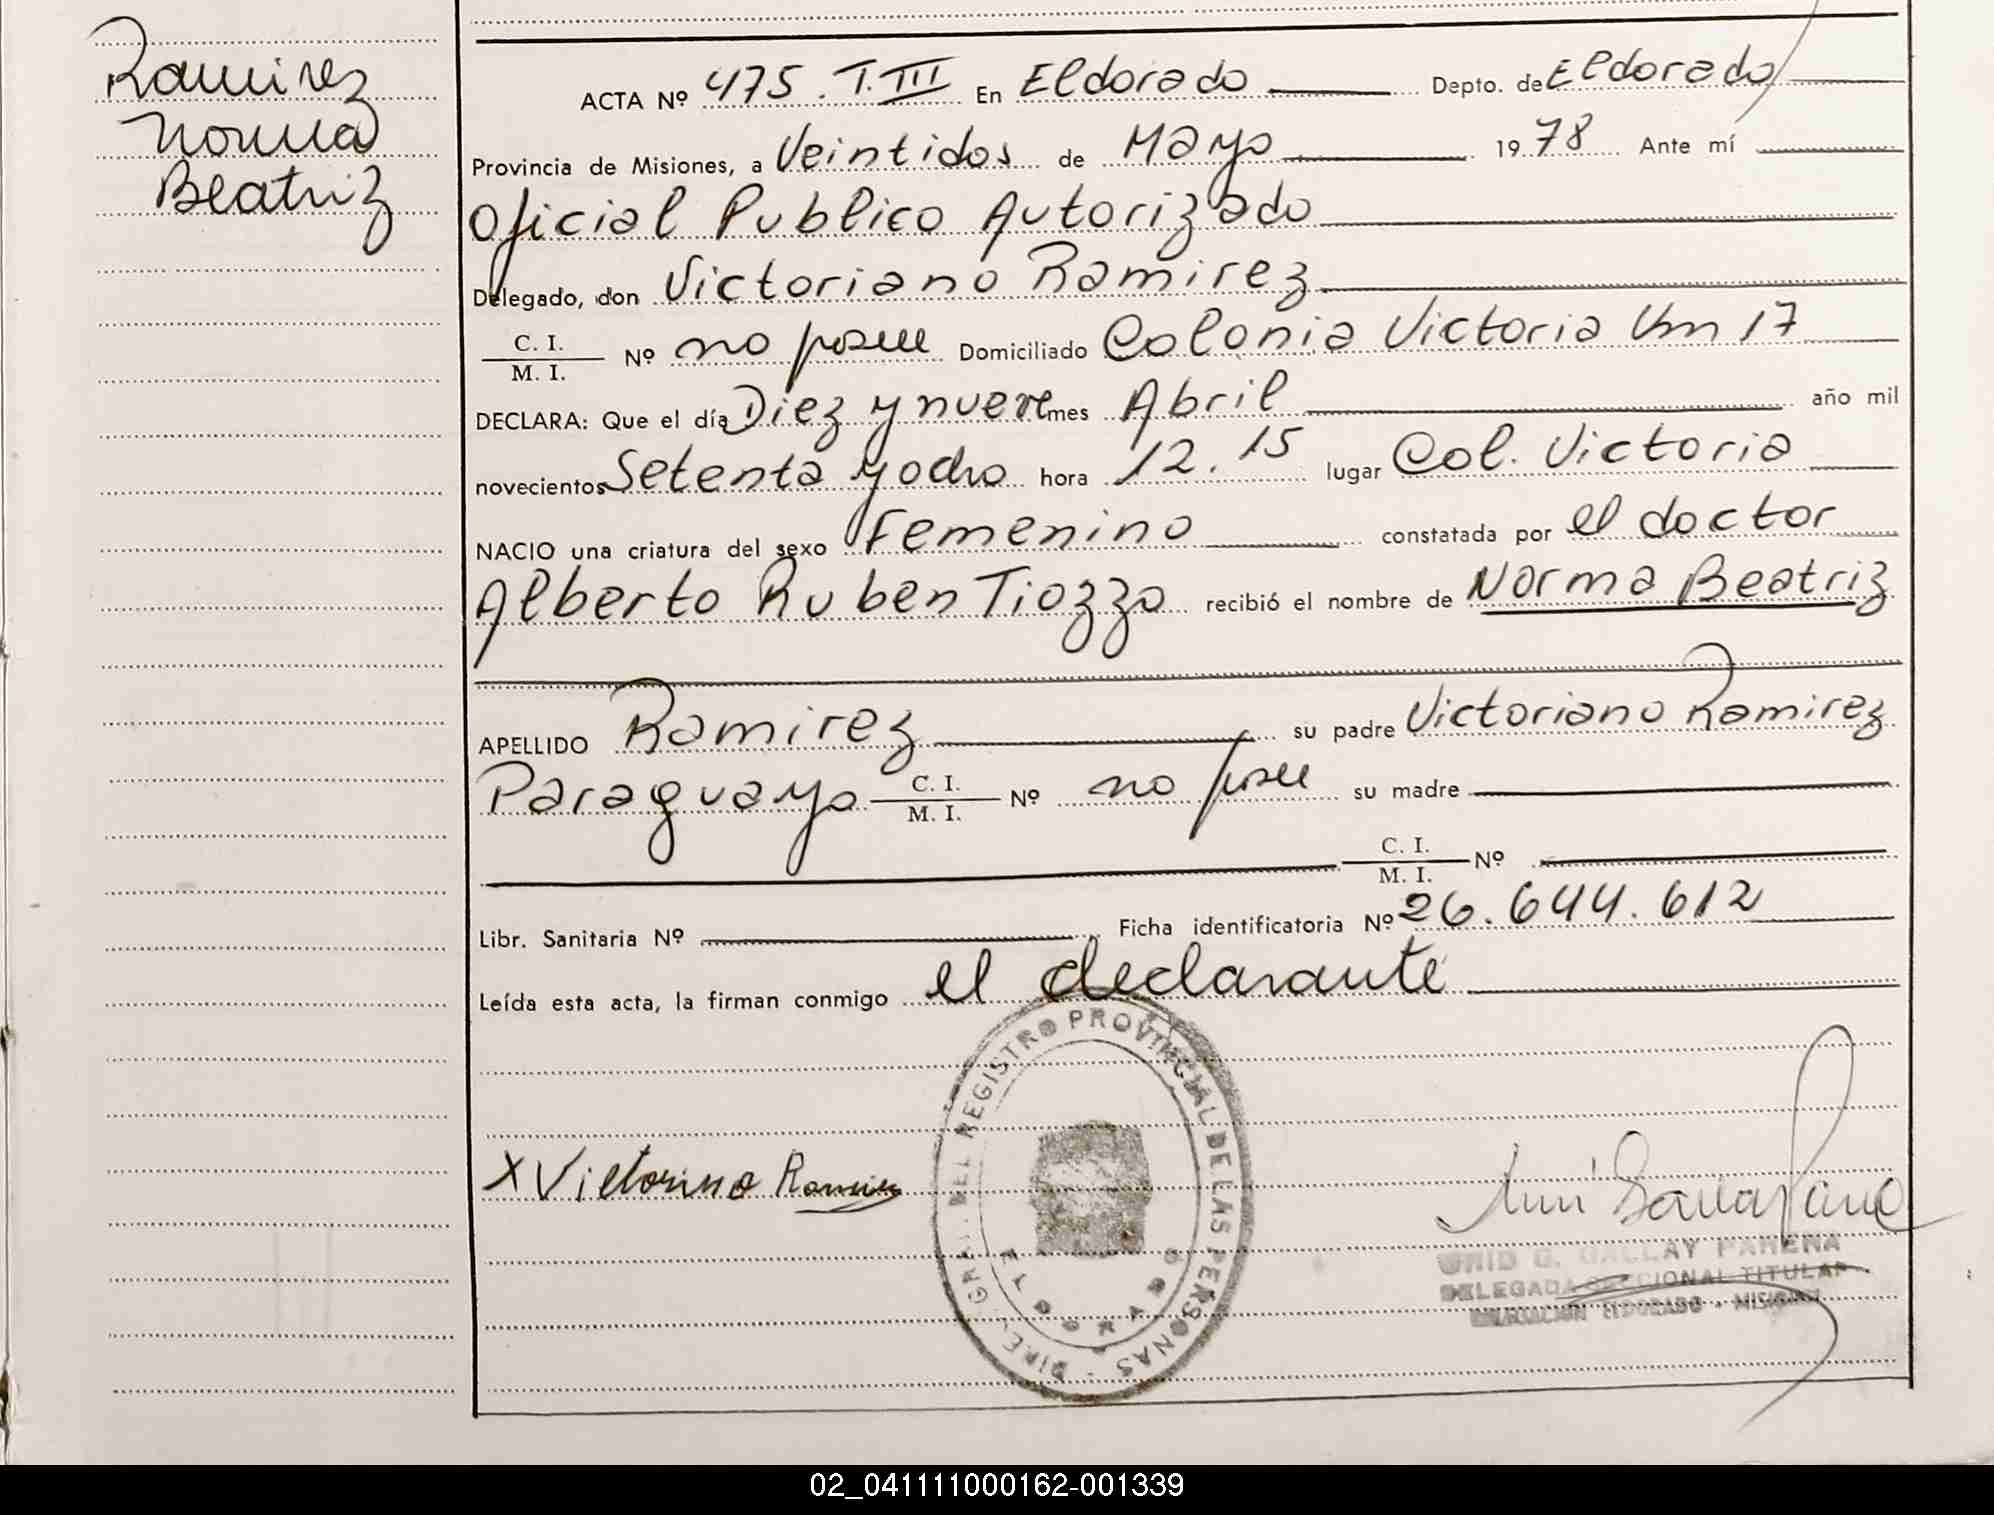 Ramirez
Norma
Beatriz
ACTA Nº 475. T. III En Eldorado Depto. de Eldorado
Provincia de Misiones, a Veintidos de Mayo 1978 Ante mí
Oficial Publico Autorizado
Delegado, don Victoriano Ramirez
C. I.
M. I. Nº no posee Domiciliado Colonia Victoria Km 17
DECLARA: Que el día Diez y nueve mes Abril año mil
novecientos Setenta y ocho hora 12.15 lugar Col. Victoria
NACIO una criatura del sexo Femenino constatada por el doctor
Alberto Ruben Tiozzo recibió el nombre de Norma Beatriz
APELLIDO Ramirez su padre Victoriano Ramirez
Paraguayo C. I. M. I. Nº no posee su madre
C. I.
M. I. Nº
Libr. Sanitaria Nº Ficha identificatoria Nº 26.644.612
Leída esta acta, la firman conmigo el declarante
DIREC. GRAL. DEL REGISTRO PROVINCIAL DE LAS PERSONAS
ELDORADO
X Victorino Ramirez
G. GALLAY
DELEGADA SECCIONAL TITULAR
DELEGACION ELDORADO - MISIONES
02_041111000162-001339